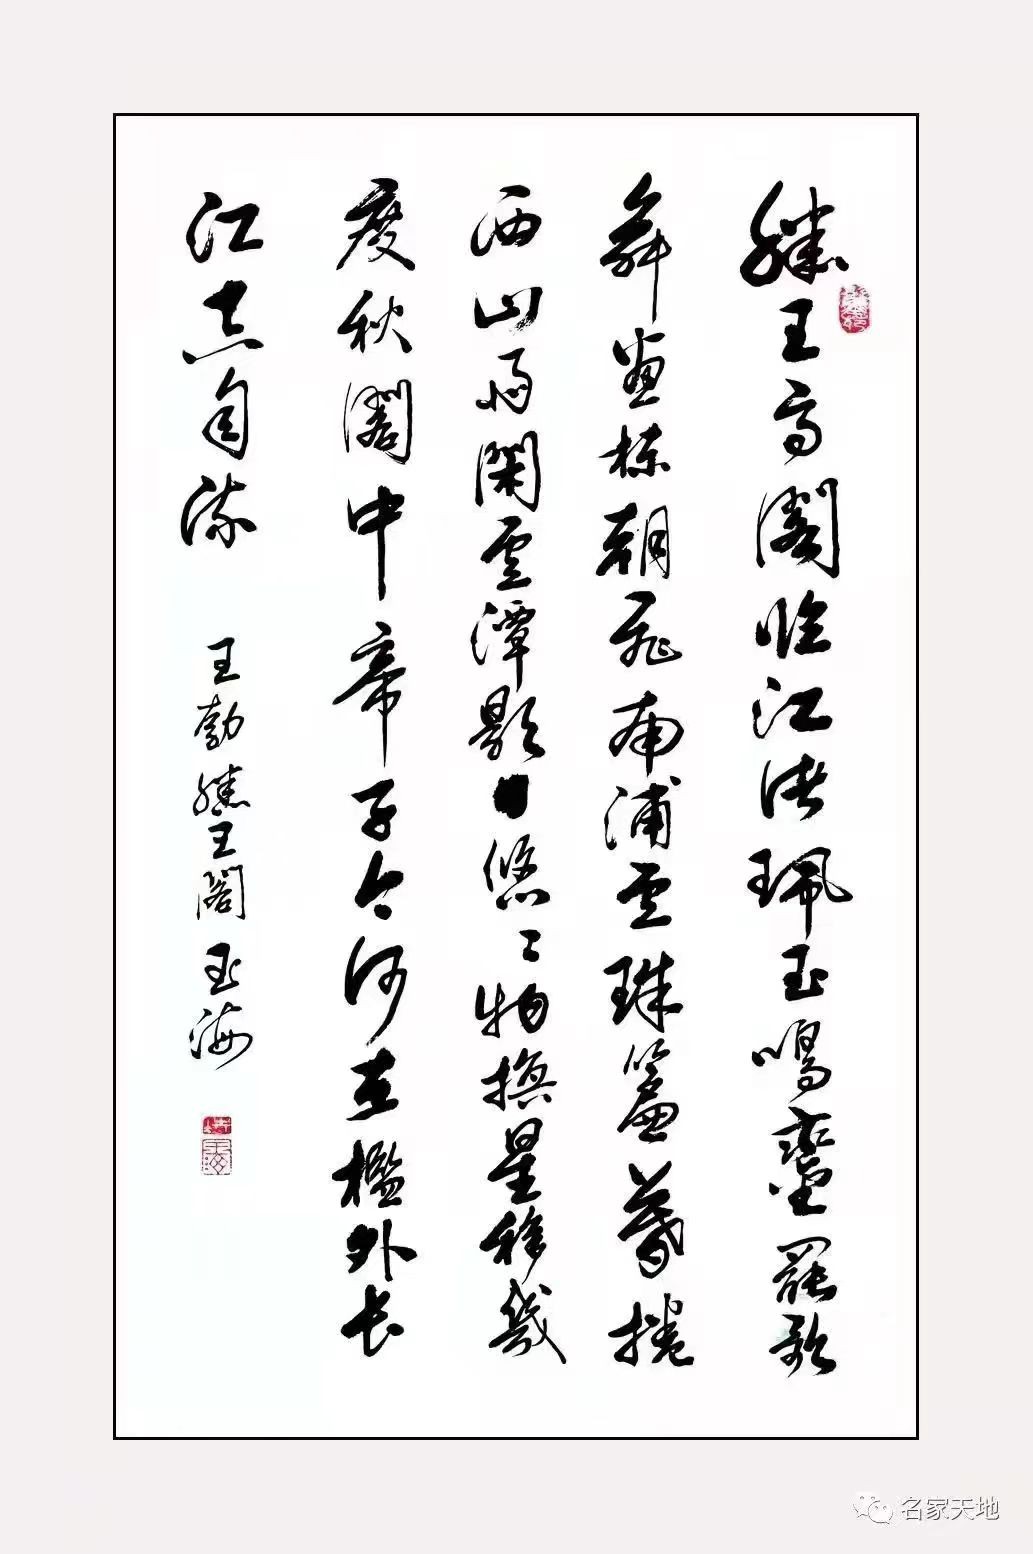 滕王高閣临江渚珮玉鳴鑾罷歌
舞畫棟朝飛南浦雲珠簾暮捲
西山雨閑雲潭影日悠〻物換星移幾
度秋閣中帝子今何在檻外长
江空自流
王勃滕王閣 玉海
名家天地